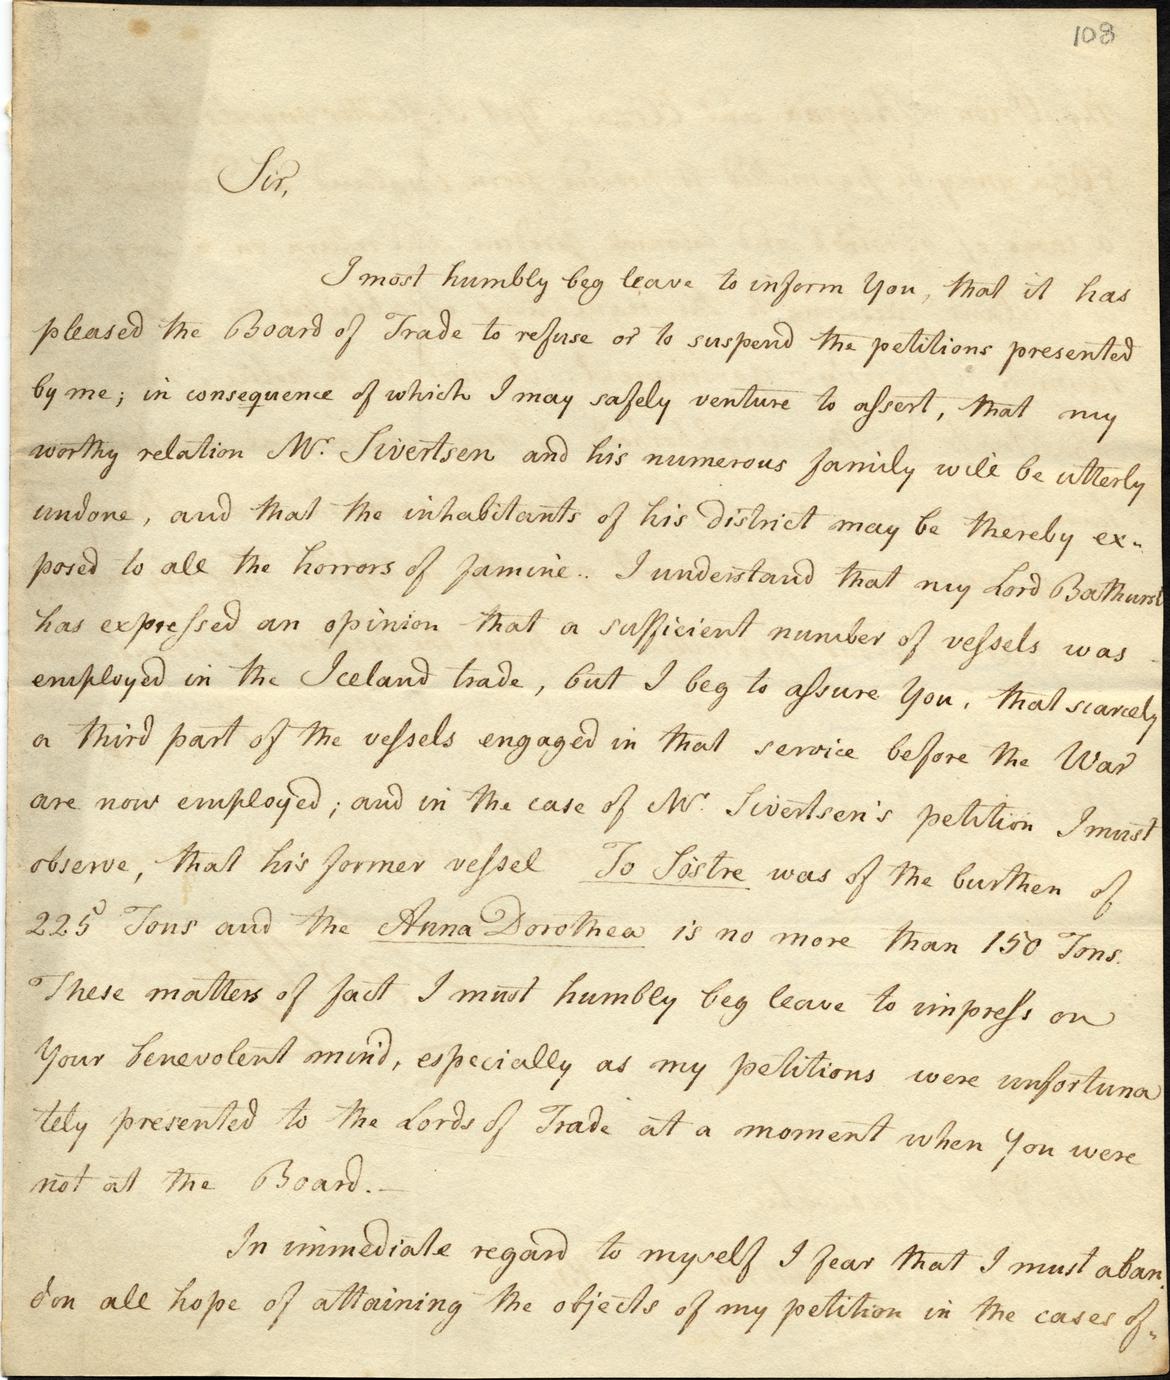 108
Sir,
I most humbly beg leave to inform You, that it has
pleased the Board of Trade to refuse or to suspend the petitions presented
by me; in consequence of which I may safely venture to aſsert, that my
worthy relation Mr. Sivertsen and his numerous family will be utterly
undone, and that the inhabitants of his district may be thereby ex-
posed to all the horrors of famine.. I understand that my Lord Bathurst
has expreſsed an opinion that a sufficient number of veſsels was
employed in the Iceland trade, but I beg to aſsure You, that scarcely
a third part of the veſsels engaged in that service before the War
are now employed; and in the case of Mr. Sivertsen's petition I must
observe, that his former veſsel To Söstre was of the burthen of
225 Tons and the Anna Dorothea is no more than 150 Tons.
These matters of fact I must humbly beg leave to impreſs on
Your benevolent mind, especially as my petitions were unfortuna
tely presented to the Lords of Trade at a moment when You were
not at the Board.—
In immediate regard to myself I fear that I must aban
don all hope of attaining the objects of my petition in the cases of-